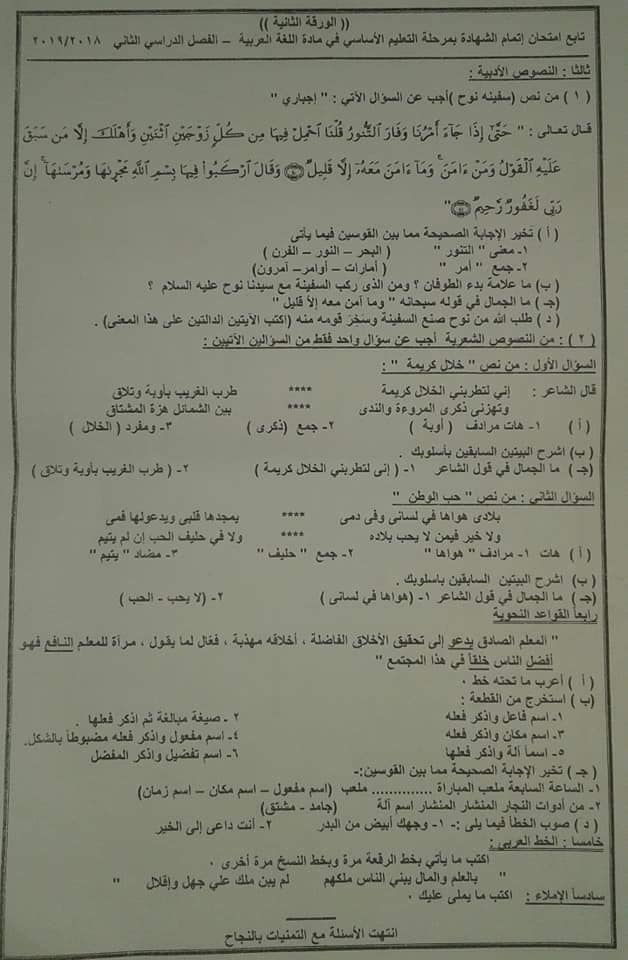 (( الورقة الثانية ))
تابع امتحان إتمام الشهادة بمرحلة التعليم الأساسي في مادة اللغة العربية – الفصل الدراسي الثاني ٢٠١٩/٢٠١٨
ثالثا : النصوص الأدبية :
( ١ ) من نص (سفينه نوح )أجب عن السؤال الآتي : " إجباري "
قال تعالى : " حَتَّىٰٓ إِذَا جَآءَ أَمْرُنَا وَفَارَ ٱلتَّنُّورُ قُلْنَا ٱحْمِلْ فِيهَا مِن كُلٍّ زَوْجَيْنِ ٱثْنَيْنِ وَأَهْلَكَ إِلَّا مَن سَبَقَ
عَلَيْهِ ٱلْقَوْلُ وَمَنْ ءَامَنَ ۚ وَمَآ ءَامَنَ مَعَهُۥٓ إِلَّا قَلِيلٌ ۝ وَقَالَ ٱرْكَبُوا۟ فِيهَا بِسْمِ ٱللَّهِ مَجْر۪ىٰهَا وَمُرْسَىٰهَآ ۚ إِنَّ
رَبِّى لَغَفُورٌ رَّحِيمٌ ۝"
( أ ) تخير الإجابة الصحيحة مما بين القوسين فيما يأتى
١- معنى " التنور " ( البحر – النور – الفرن )
٢- جمع " أمر " ( أمارات – أوامر – آمرون)
( ب) ما علامة بدء الطوفان ؟ ومن الذى ركب السفينة مع سيدنا نوح عليه السلام ؟
( جـ ) ما الجمال في قوله سبحانه " وما آمن معه إلا قليل "
( د ) طلب الله من نوح صنع السفينة وسَخِرَ قومه منه (اكتب الآيتين الدالتين على هذا المعنى) .
( ٢ ) : من النصوص الشعرية أجب عن سؤال واحد فقط من السؤالين الآتيين :
السؤال الأول : من نص " خلال كريمة " :
قال الشاعر : إني لتطربني الخلال كريمة **** طرب الغريب بأوبة وتلاق
وتهزنى ذكرى المروءة والندى **** بين الشمائل هزة المشتاق
( أ ) ١- هات مرادف ( أوبة ) ٢- جمع (ذكرى ) ٣- ومفرد ( الخلال )
( ب) اشرح البيتين السابقين بأسلوبك .
(جـ ) ما الجمال في قول الشاعر ١- ( إنى لتطربني الخلال كريمة ) ٢- ( طرب الغريب بأوبة وتلاق )
السؤال الثاني : من نص " حب الوطن "
بلادى هواها في لسانى وفى دمى **** يمجدها قلبى ويدعولها فمى
ولا خير فيمن لا يحب بلاده **** ولا في حليف الحب إن لم يتيم
( أ ) هات ١- مرادف " هواها " ٢- جمع " حليف " ٣- مضاد " يتيم "
( ب) اشرح البيتين السابقين بأسلوبك .
(جـ ) ما الجمال في قول الشاعر ١- (هواها في لسانى ) ٢- (لا يحب - الحب )
رابعاً القواعد النحوية
" المعلم الصادق يدعو إلى تحقيق الأخلاق الفاضلة ، أخلاقه مهذبة ، فعّال لما يقول ، مرآة للمعلم النافع فهو
أفضل الناس خلقاً في هذا المجتمع "
( أ ) أعرب ما تحته خط ٠
(ب ) استخرج من القطعة :
١- اسم فاعل واذكر فعله ٢ - صيغة مبالغة ثم اذكر فعلها .
٣- اسم مكان واذكر فعله ٤- اسم مفعول واذكر فعله مضبوطاً بالشكل.
٥- اسماً آلة واذكر فعلها ٦- اسم تفضيل واذكر المفضل
( جـ ) تخير الإجابة الصحيحة مما بين القوسين:-
١- الساعة السابعة ملعب المباراة .............. ملعب (اسم مفعول – اسم مكان – اسم زمان)
٢- من أدوات النجار المنشار المنشار اسم آلة (جامد - مشتق)
( د ) صوب الخطأ فيما يلى :- ١- وجهك أبيض من البدر ٢- أنت داعى إلى الخير
خامسا : الخط العربي :
اكتب ما يأتي بخط الرقعة مرة وبخط النسخ مرة أخرى ٠
" بالعلم والمال يبني الناس ملكهم لم يبن ملك علي جهل وإقلال "
سادساً الإملاء : اكتب ما يملى عليك ٠
انتهت الأسئلة مع التمنيات بالنجاح